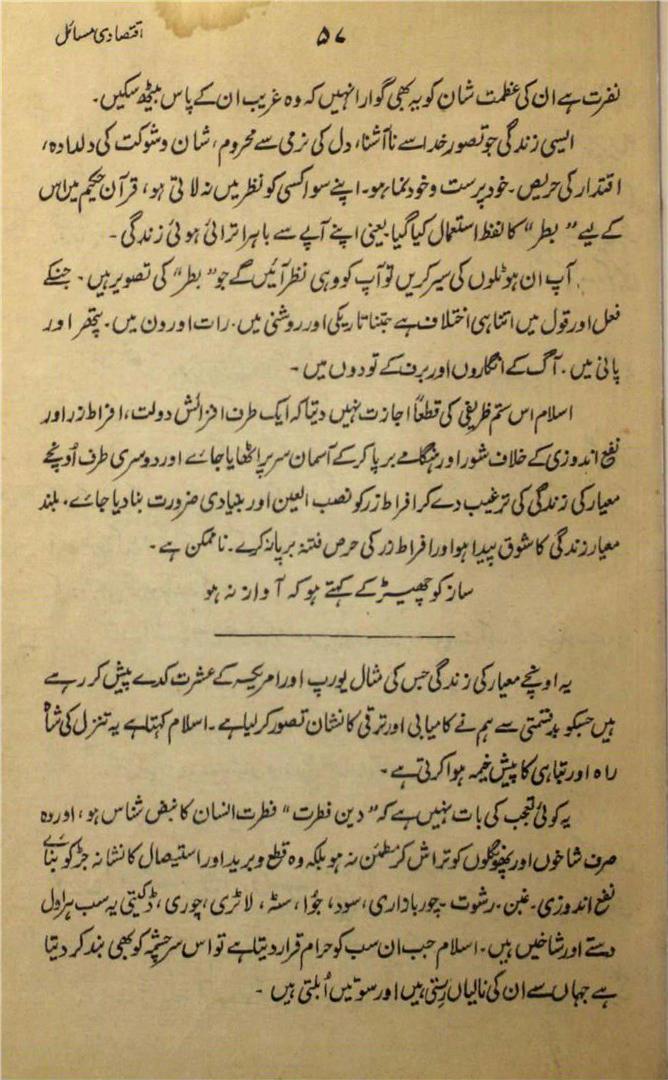 ۵۷
اقتصادی مسائل
نفرت ہے ان کی عظمت شان کو یہ بھی گوارا نہیں کہ وہ غریب ان کے پاس بیٹھ سکیں۔
ایسی زندگی جو تصور خدا سے ناآشنا، دل کی نرمی سے محروم، شان و شوکت کی دلدادہ،
اقتدار کی حریص۔ خود پرست و خود نما ہو۔ اپنے سوا کسی کو نظر میں نہ لاتی ہو، قرآن حکیم میں اس
کے لیے ”بطر“ کا لفظ استعمال کیا گیا یعنی اپنے آپے سے باہر اترائی ہوئی زندگی۔
آپ ان ہوٹلوں کی سیر کریں تو آپ کو وہی نظر آئیں گے جو ”بطر“ کی تصویر ہیں۔ جنکے
فعل اور قول میں اتنا ہی اختلاف ہے جتنا تاریکی اور روشنی میں۔ رات اور دن میں۔ پتھر اور
پانی میں۔ آگ کے انگاروں اور برف کے تودوں میں۔
اسلام اس ستم ظریفی کی قطعاً اجازت نہیں دیتا کہ ایک طرف افزائش دولت، افراط زر اور
نفع اندوزی کے خلاف شور اور ہنگامے برپا کر کے آسمان سر پر اٹھایا جائے اور دوسری طرف اُونچے
معیار کی زندگی کی ترغیب دے کر افراط زر کو نصب العین اور بنیادی ضرورت بنا دیا جائے۔ بلند
معیار زندگی کا شوق پیدا ہو اور افراط زر کی حرص فتنہ برپا نہ کرے۔ ناممکن ہے۔
ساز کو چھیڑ کے کہتے ہو کہ آواز نہ ہو
یہ اونچے معیار کی زندگی جس کی مثال یورپ اور امریکہ کے عشرت کدے پیش کر رہے
ہیں جسکو بدقسمتی سے ہم نے کامیابی اور ترقی کا نشان تصور کر لیا ہے۔ اسلام کہتا ہے یہ تنزل کی شاہ
راہ اور تباہی کا پیش خیمہ ہوا کرتی ہے۔
یہ کوئی تعجب کی بات نہیں ہے کہ ”دین فطرت“ فطرت انسان کا نبض شناس ہو، اور وہ
صرف شاخوں اور پھنگلوں کو تراش کر مطمئن نہ ہو بلکہ وہ قطع و برید اور استیصال کا نشانہ جڑ کو بنائے
نفع اندوزی۔ غبن۔ رشوت۔ چور بازاری، سود، جوُا، سٹہ، لاٹری، چوری، ڈکیتی یہ سب ہراول
دستے اور شاخیں ہیں۔ اسلام جب ان سب کو حرام قرار دیتا ہے تو اس سرچشمہ کو بھی بند کر دیتا
ہے جہاں سے ان کی نالیاں رِستی ہیں اور سوتیں اُبلتی ہیں۔